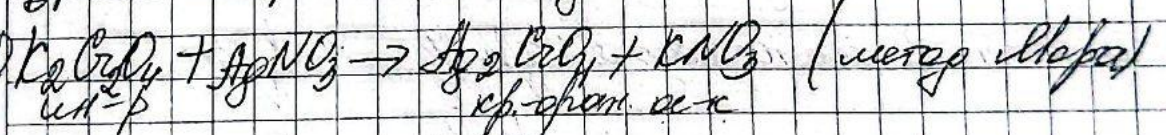 ) K₂CrO₄ + AgNO₃ → Ag₂CrO₄ + KNO₃ (метод Мора)
ин-р кр.-оран. ос-к